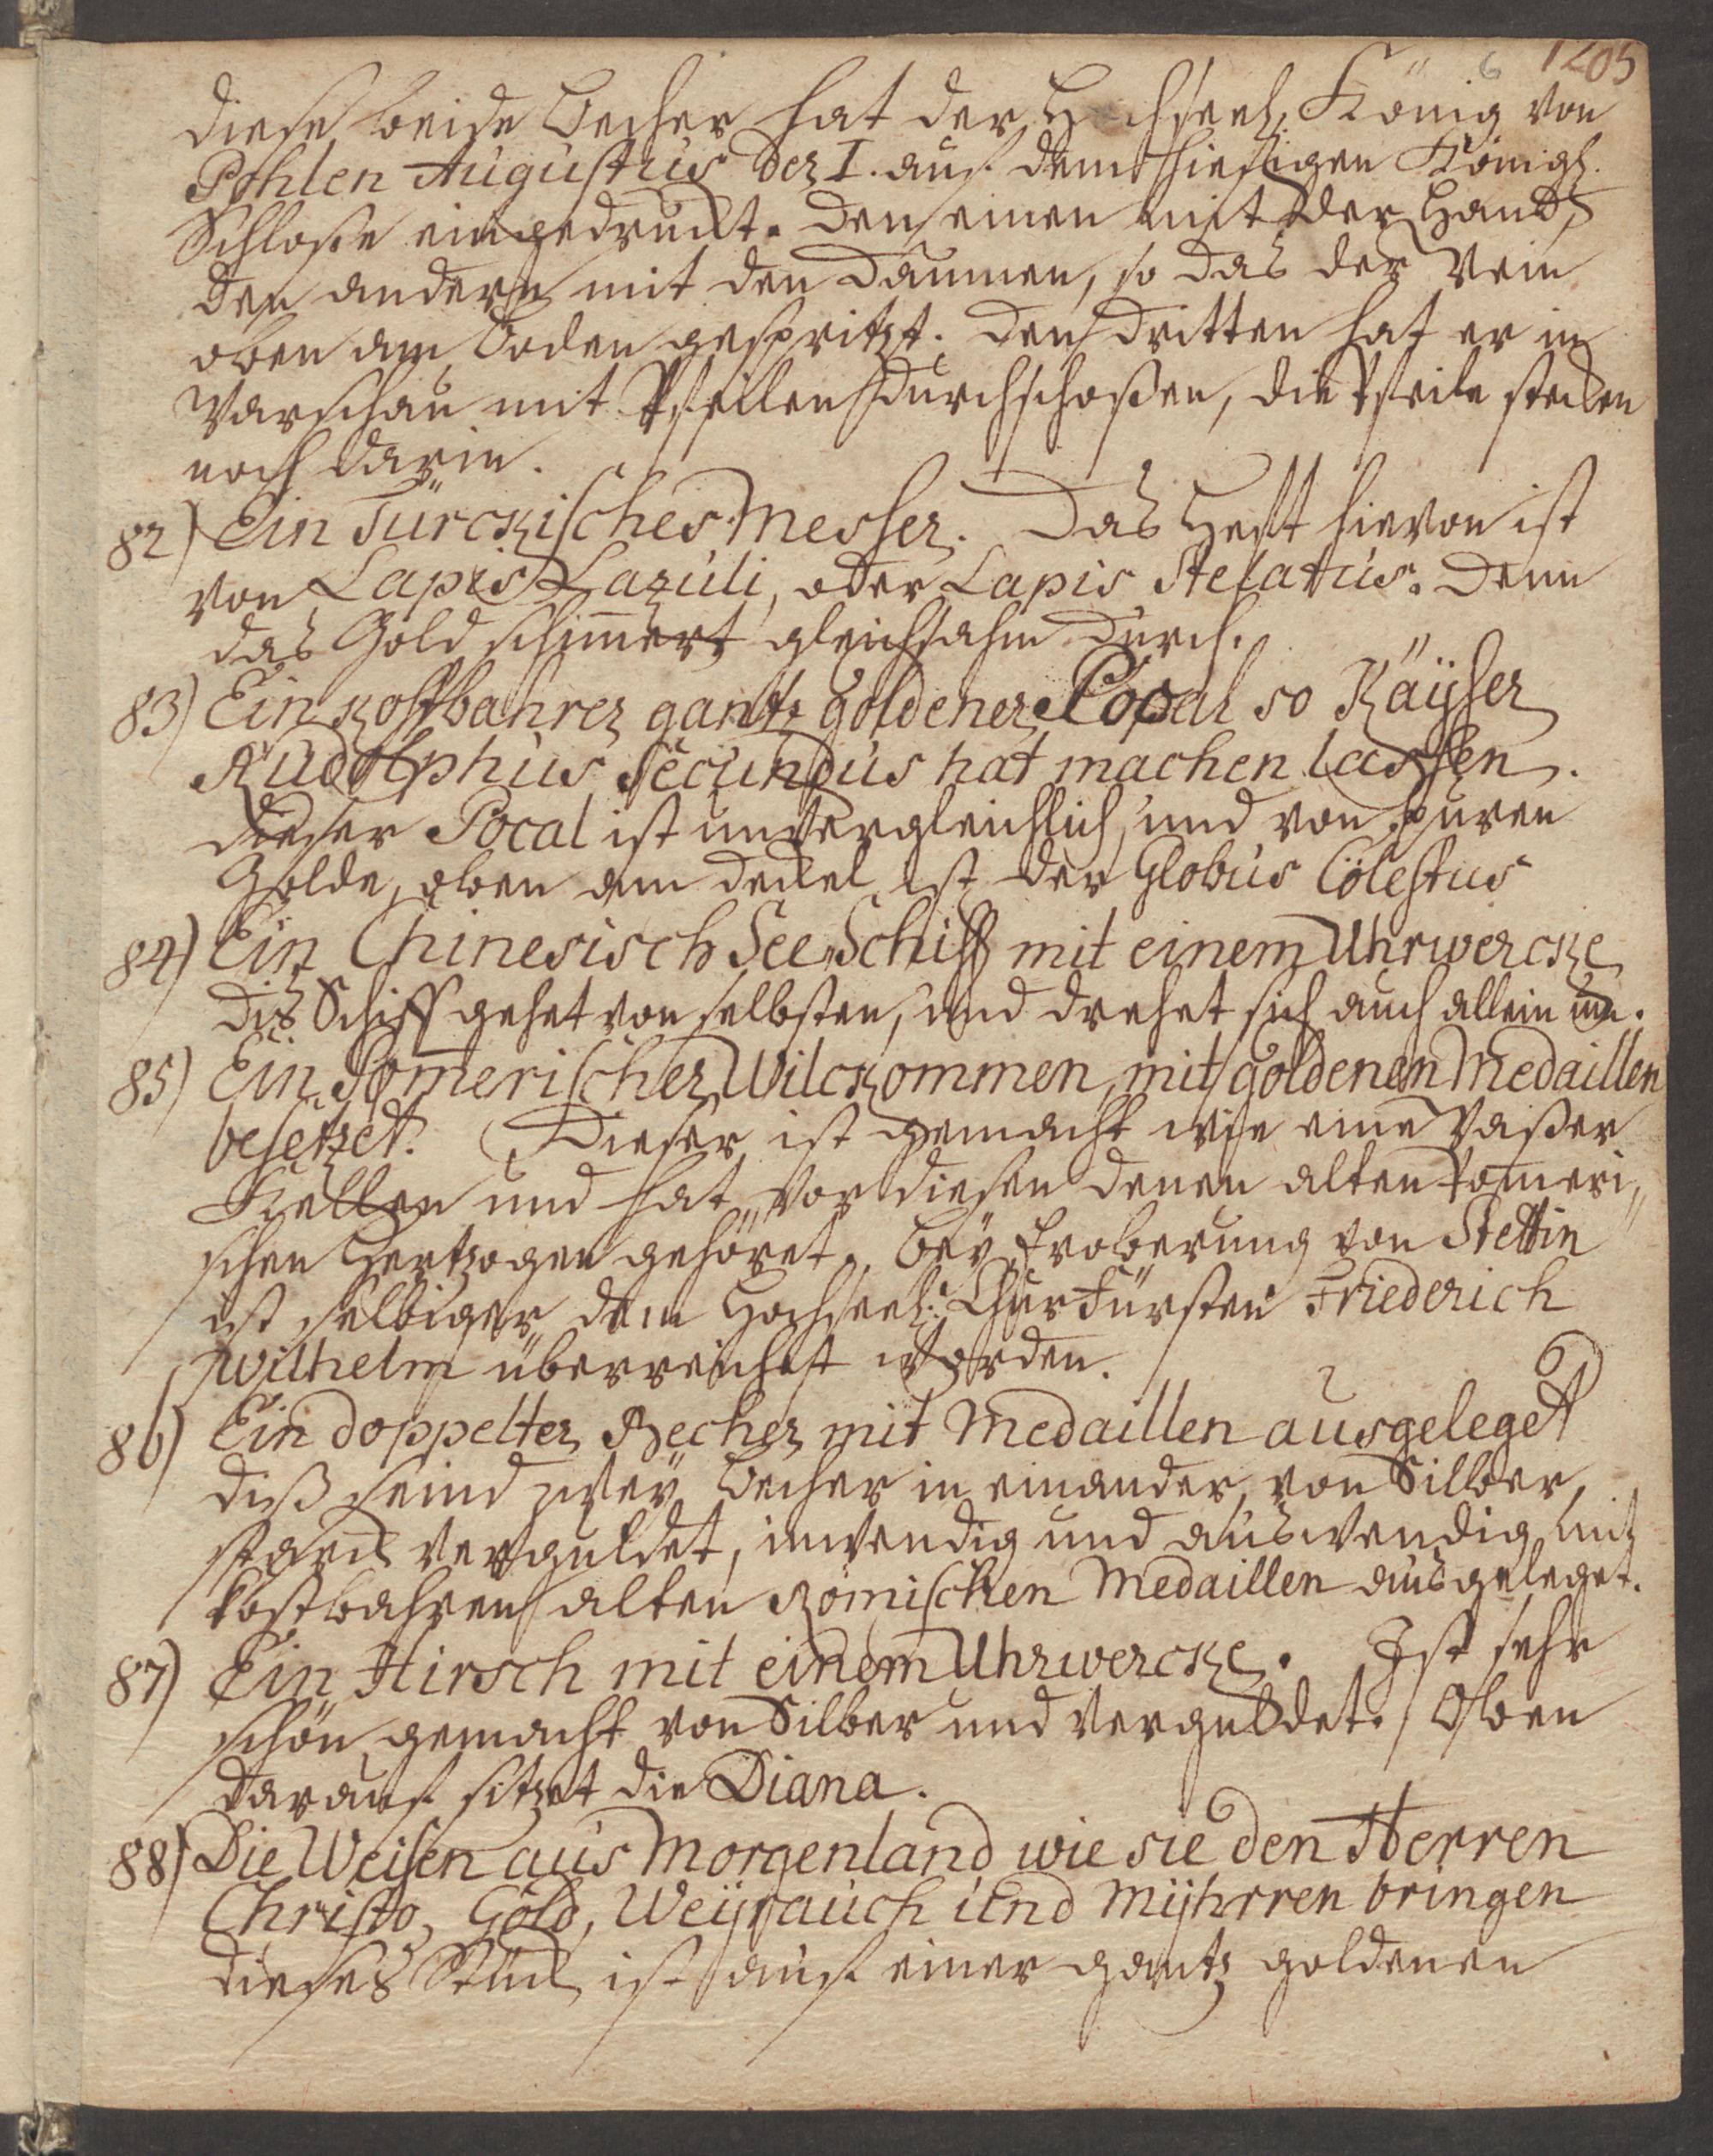 6 1205
diese beide Becher hat der Hochseel. König von
Pohlen Augustus der I. auf dem hiesigen Königl.
Schloße eingedruckt. den einen mit der Hand,
den andern mit den Daumen, so das der Wein
oben am Boden gespritzt. den dritten hat er in
Warschau mit Pfeillen durchschoßen, die Pfeile stecken
noch darin.
82) Ein Türckisches Messer. Das Heft hievon ist
von Lapis Lazuli, oder Lapis Stelatus. denn
das Gold schim̄ert gleichsahm durch.
83) Ein kostbahrer gantz goldener Pocal so Käyser
Rudolphus Secundus hat machen lassen.
dieser Pocal ist unvergleichlich, und von puren
Golde, oben am deckel ist der Globus Cölestus
84) Ein Chinesisch See-Schiff mit einem Uhrwercke
diß Schiff gehet von selbsten, und drehet sich auch allein um.
85) Ein Pom̄erischer Wilckommen, mit goldenen Medaillen
besetzet. Dieser ist gemacht wie eine Waßer
Kellen und hat vor diesen denen alten Pomeri,,
schen Hertzogen gehöret. bey Eroberung von Stettin
ist selbiger dem Hochseel: Churfürsten Friederich
Wilhelm überreichet worden.
86) Ein doppelter Becher mit Medaillen ausgeleget
diß seind zwey Becher in einander, von Silber,
starck verguldet, inwendig und auswendig mit
kostbahren alten Römischen Medaillen ausgeleget.
87) Ein Hirsch mit einem Uhrwercke. Ist sehr
schön gemacht von Silber und verguldet. Oben
darauf sitzet die Diana.
88) Die Weisen aus Morgenland wie sie den Herren
Christo, Gold, Weyrauch und Myhrren bringen
dieses Stück ist auf einer gantz goldenen